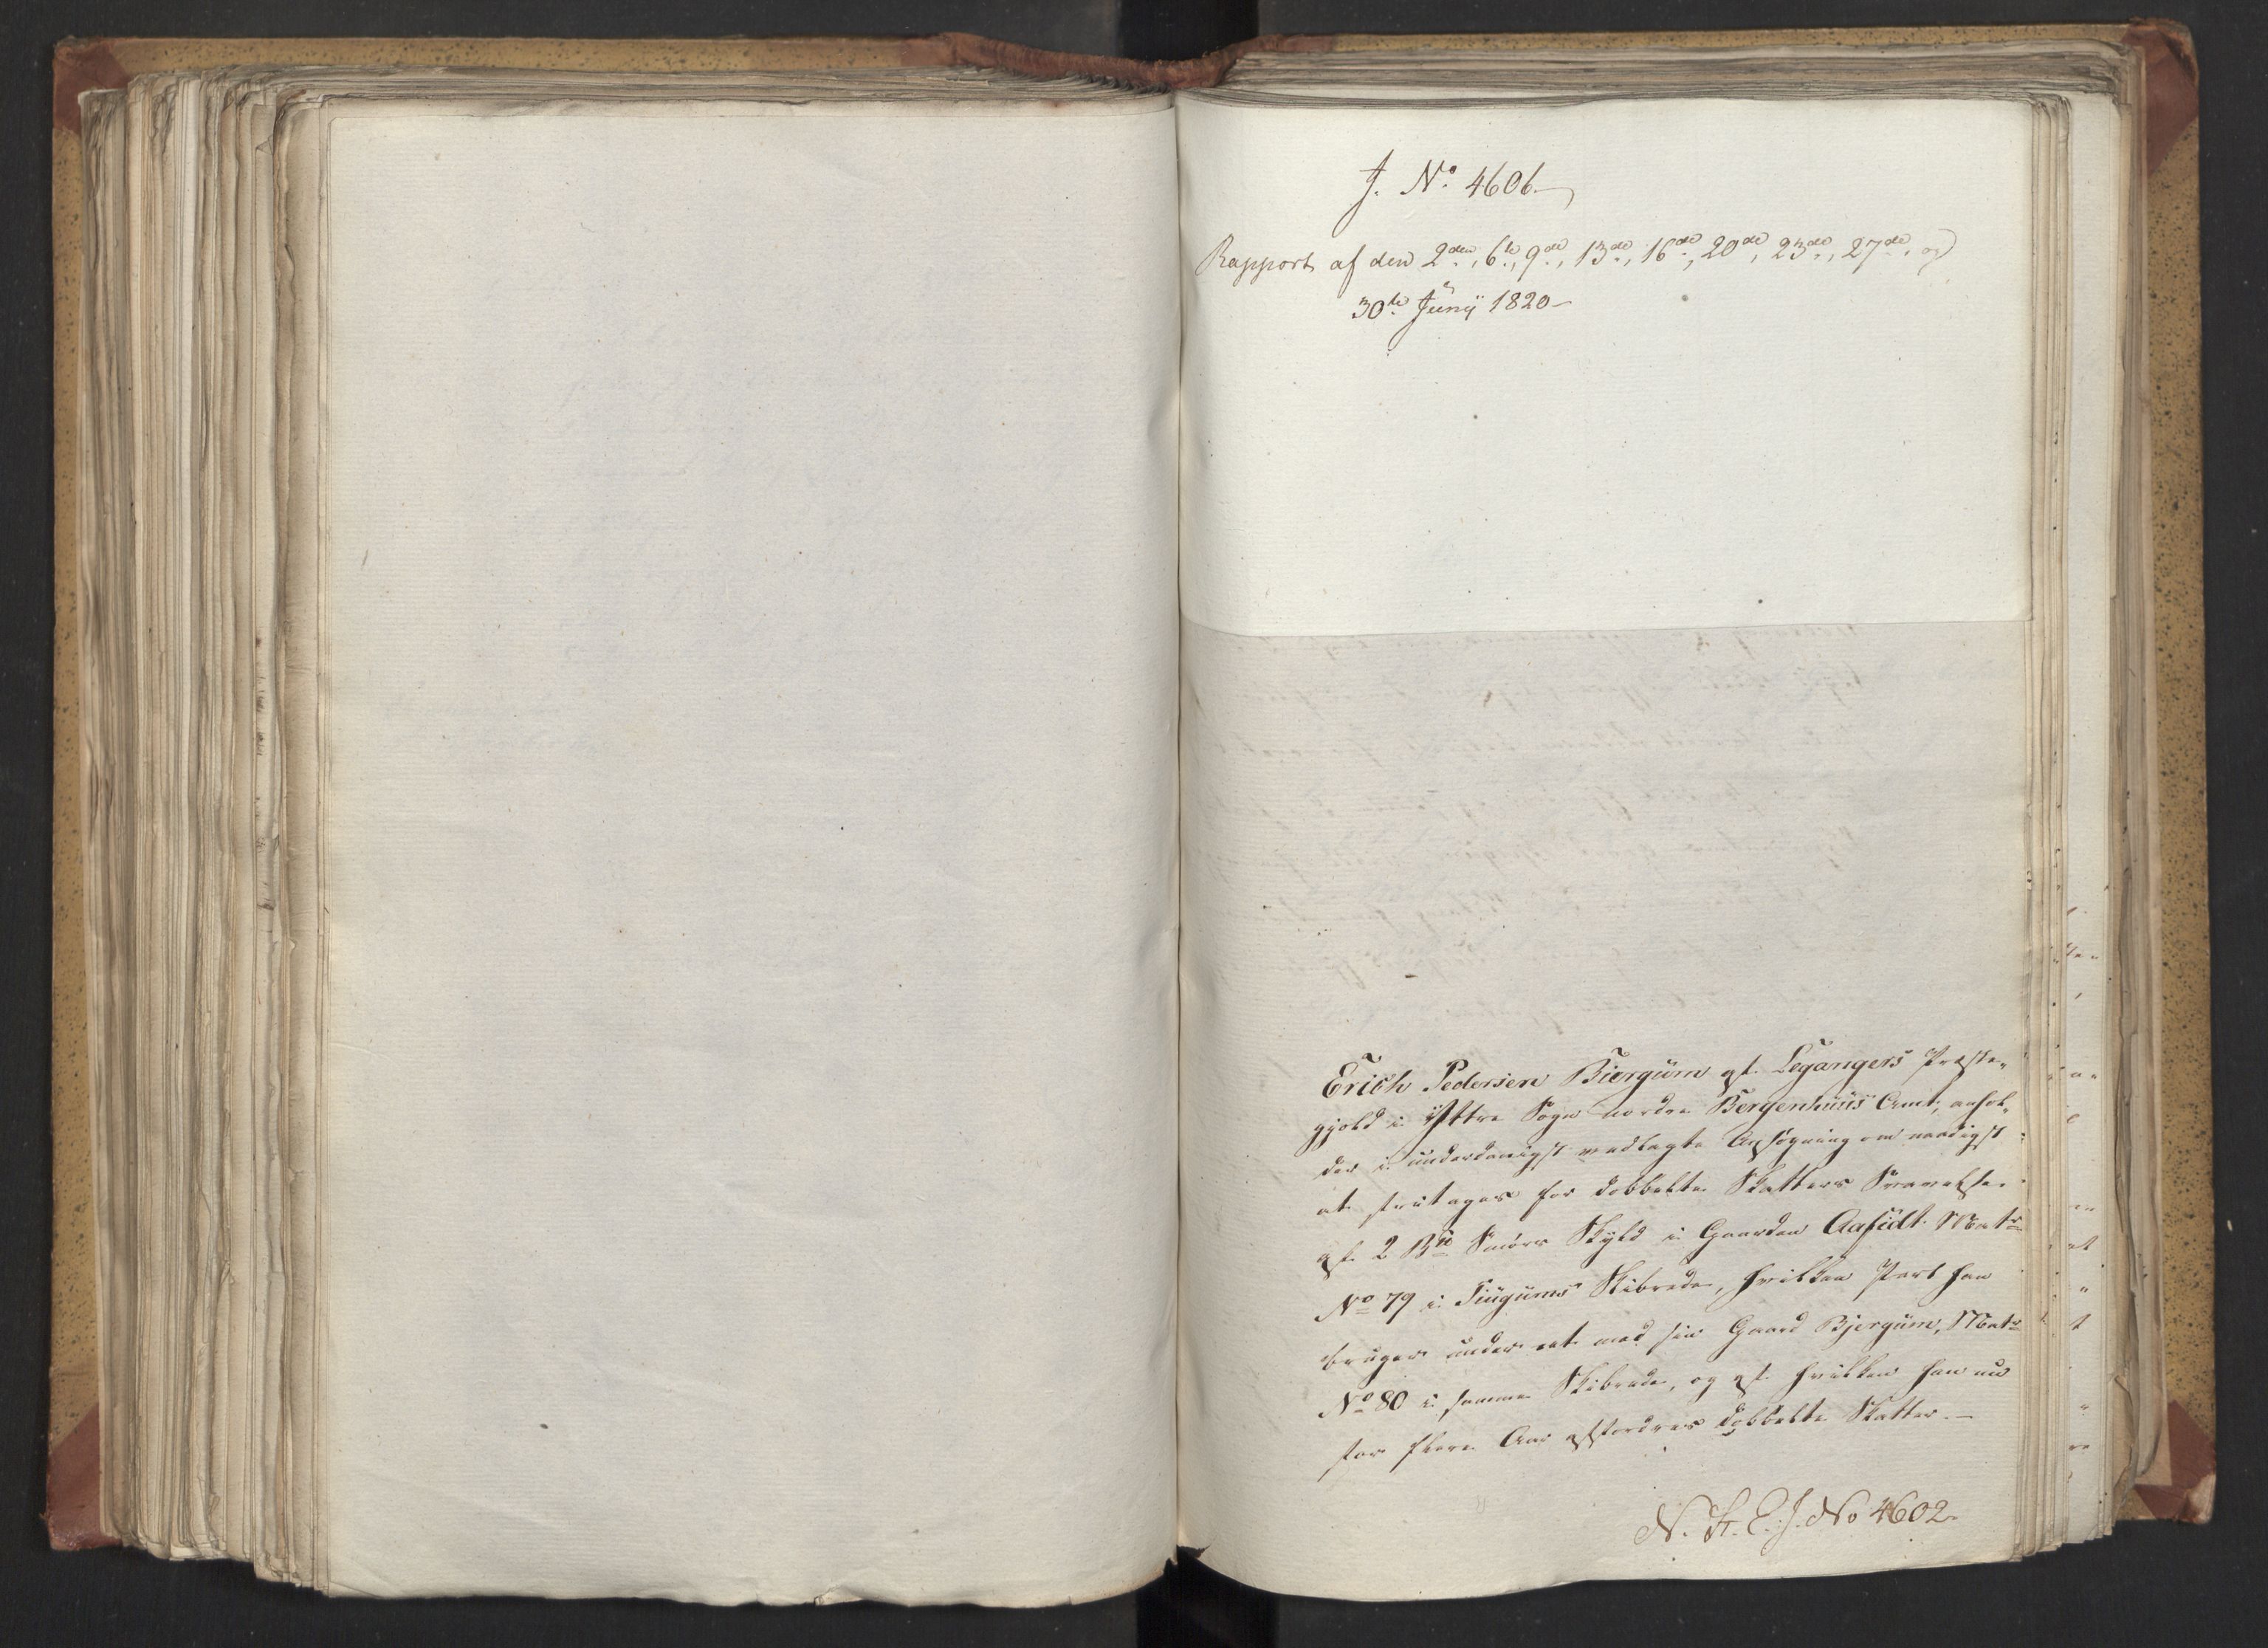 J. No. 4606
Rapport af den 2den, 6te, 9de, 13de, 16de, 20de, 23de, 27de, og
30te Junij 1820
Erich Pedersen Biergum af Legangers Præste-
gjeld i Yttre Sogn nordre Bergenhuus Amt, anhol-
der i underdanigst vedlagte Ansøgning om naadigst
at fritages for dobbelte Skatters Svarelse
af 2 Bd Smørs Skyld i Gaarden Aafedt Matr
No 79 i Tiugums Skibrede, hvilken Part han
bruger under eet med sin Gaard Bjergum, Matr
No 80 i samme Skibrede, og af hvilken han nu
for flere Aar affordres dobbelte Skatter.
N. F. E. J. No 4602.